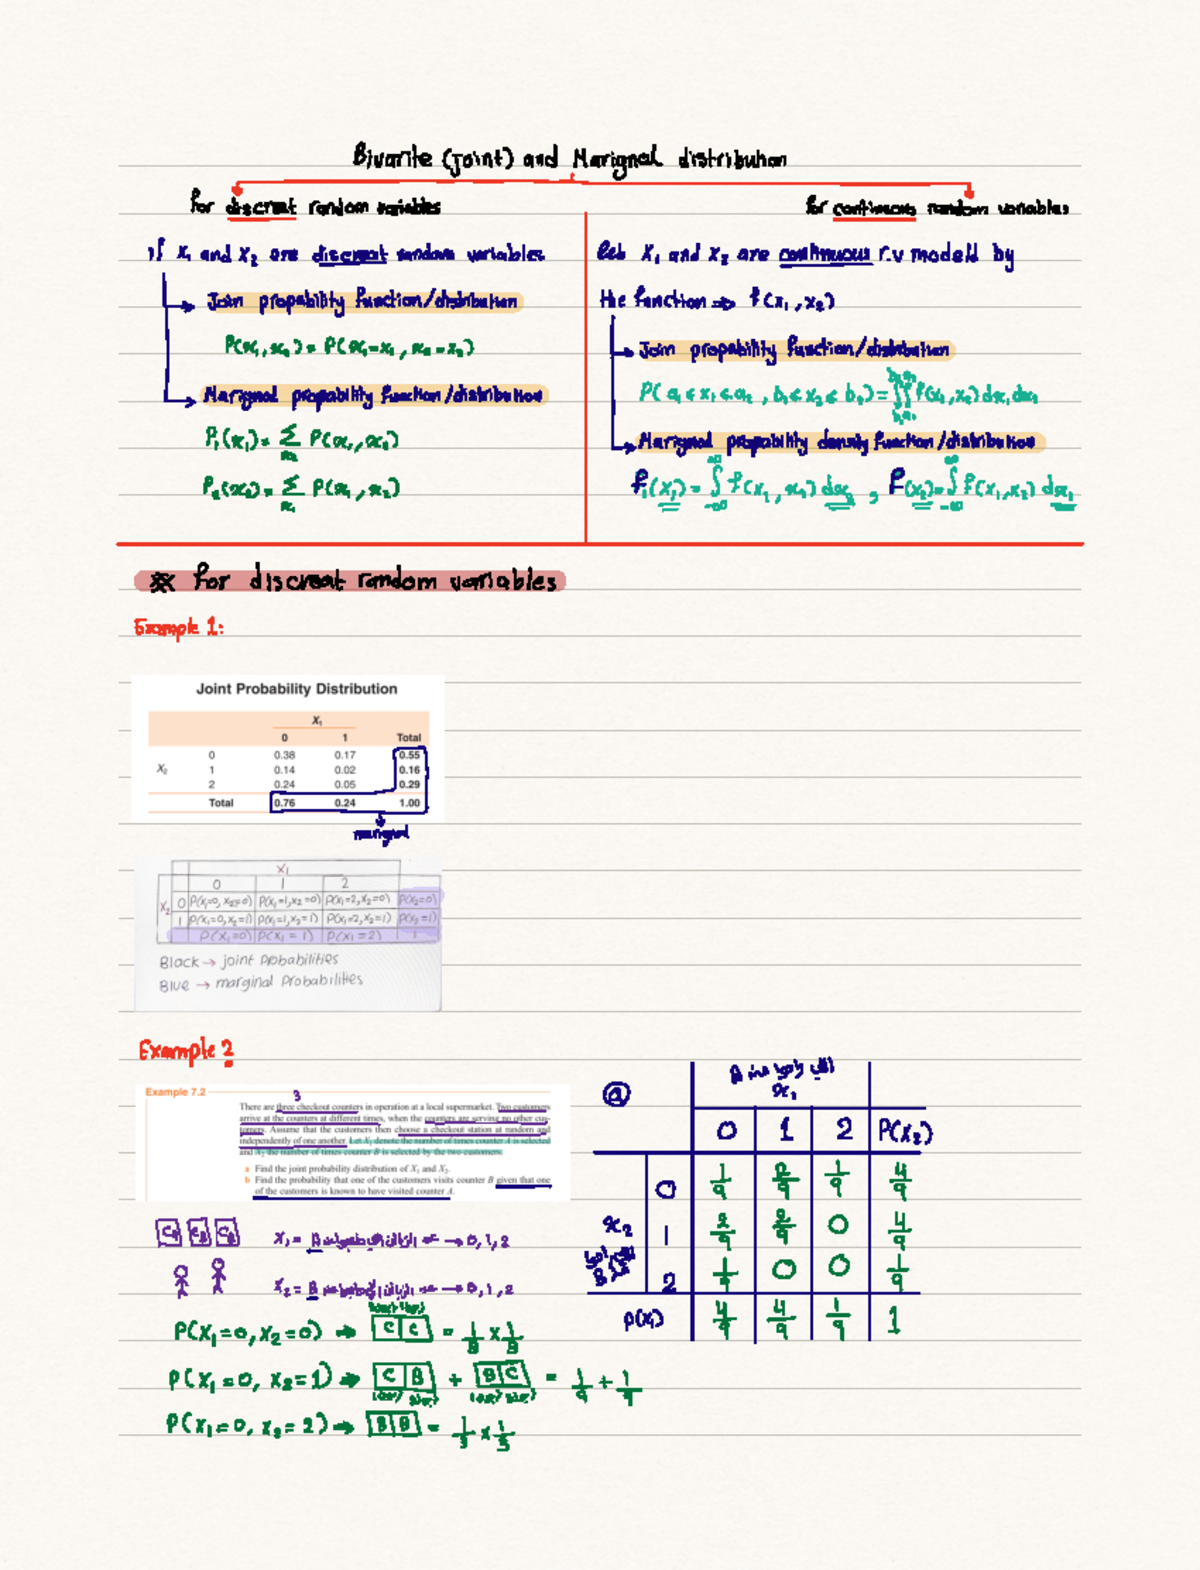 Bivarite (Joint) and Marignal distribution
for discreat random variables
for continuous random variables
if X₁ and X₂ are discreat random variables
Join propability function/distribution
P(x₁,x₂) = P(x₁=x₁, x₂=x₂)
Marignal propability function/distribution
P₁(x₁) = Σ P(x₁,x₂)
x₂
P₂(x₂) = Σ P(x₁,x₂)
x₁
let X₁ and X₂ are continuous r.v modeld by
the function ⇒ f(x₁,x₂)
Join propability function/distribution
P(a₁≤x₁≤a₂, b₁≤x₂≤b₂) = ∫∫ f(x₁,x₂) dx₁ dx₂
Marignal propability density function/distribution
f₁(x₁) = ∫ f(x₁,x₂) dx₂ , f(x₂) = ∫ f(x₁,x₂) dx₁
※ for discreat random variables
Example 1:
Joint Probability Distribution
X₁
0 1 Total
0 0.38 0.17 0.55
X₂ 1 0.14 0.02 0.16
2 0.24 0.05 0.29
Total 0.76 0.24 1.00
marignal
X₁
0 1 2
X₂ 0 P(X₁=0, X₂=0) P(X₁=1, X₂=0) P(X₁=2, X₂=0) P(X₂=0)
1 P(X₁=0, X₂=1) P(X₁=1, X₂=1) P(X₁=2, X₂=1) P(X₂=1)
P(X₁=0) P(X₁=1) P(X₁=2) 1
Black → joint Probabilities
Blue → marginal Probabilities
Example 2
Example 7.2
3
There are three checkout counters in operation at a local supermarket. Two customers
arrive at the counters at different times, when the counters are serving no other cus-
tomers. Assume that the customers then choose a checkout station at random and
independently of one another. Let X₁ denote the number of times counter A is selected
and X₂ the number of times counter B is selected by the two customers.
a Find the joint probability distribution of X₁ and X₂.
b Find the probability that one of the customers visits counter B given that one
of the customers is known to have visited counter A.
X₁ = A → 0,1,2
X₂ = B → 0,1,2
P(X₁=0, X₂=0) ⇒ C C = 1/3 × 1/3
P(X₁=0, X₂=1) ⇒ C B + B C = 1/9 + 1/9
P(X₁=0, X₂=2) ⇒ B B = 1/3 × 1/3
ⓐ
x₁
0 1 2 P(X₂)
0 1/9 2/9 1/9 4/9
x₂ 1 2/9 2/9 0 4/9
2 1/9 0 0 1/9
P(X₁) 4/9 4/9 1/9 1